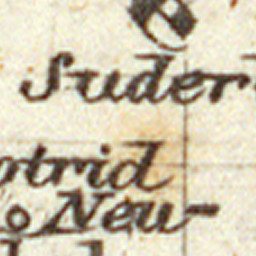 Suder
rtrid
Neu-